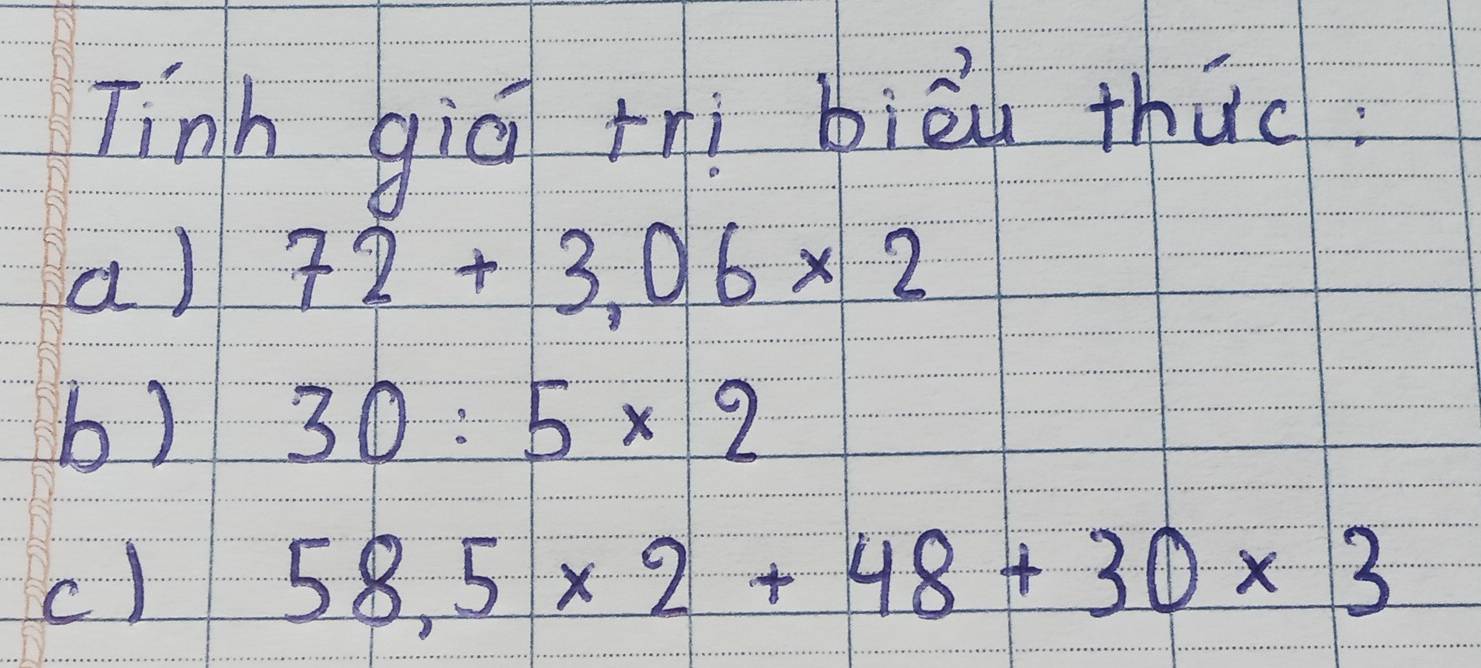 Tính giá trị biểu thức:
a) 72 + 3,06 × 2
b) 30 : 5 × 2
c) 58,5 × 2 + 48 + 30 × 3